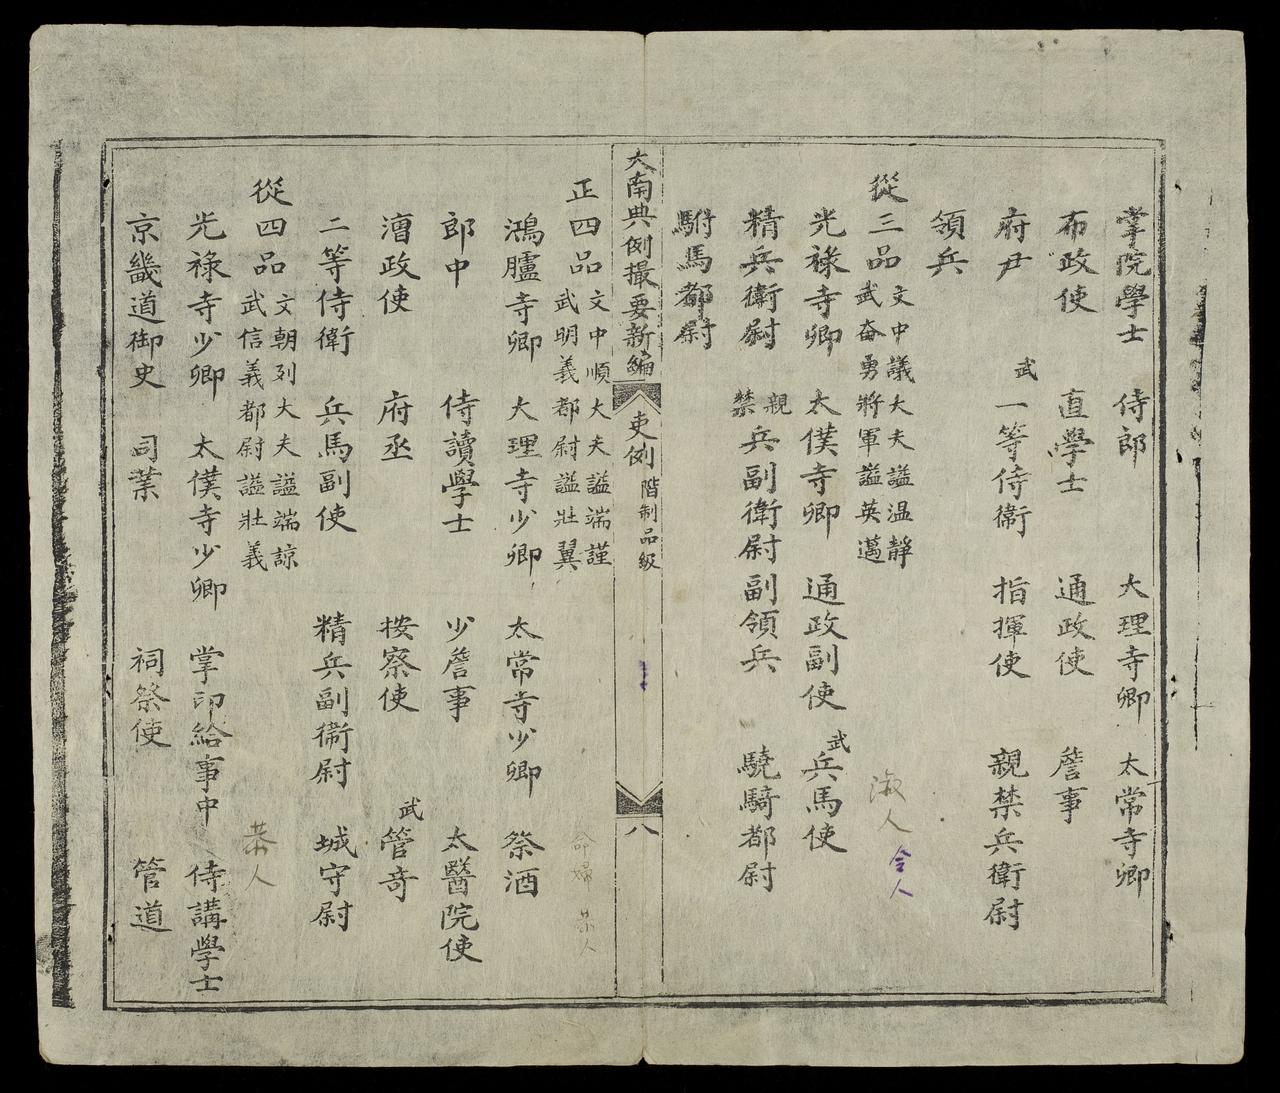 掌院學士 侍郎 大理寺卿 太常寺卿
布政使 直學士 通政使 詹事
府尹 武 一等侍衛 指揮使 親禁兵衛尉
領兵
從三品 文中議大夫謚温靜
武奋勇將軍謚英邁
淑人 令人
光祿寺卿 太僕寺卿 通政副使 武 兵馬使
精兵衛尉 親禁兵副衛尉副領兵 驍騎都尉
駙馬都尉
大南典例撮要新編 吏例 階制品級 八
正四品 文中順大夫謚端謹
武明義都尉謚壯翼
命婦 恭人
鴻臚寺卿 大理寺少卿 太常寺少卿 祭酒
郎中 侍讀學士 少詹事 太醫院使
漕政使 府丞 按察使 武 管奇
二等侍衛 兵馬副使 精兵副衛尉 城守尉
從四品 文朝列大夫謚端諒
武信義都尉謚壯義
恭人
光祿寺少卿 太僕寺少卿 掌印給事中 侍講學士
京畿道御史 司業 祠祭使 管道